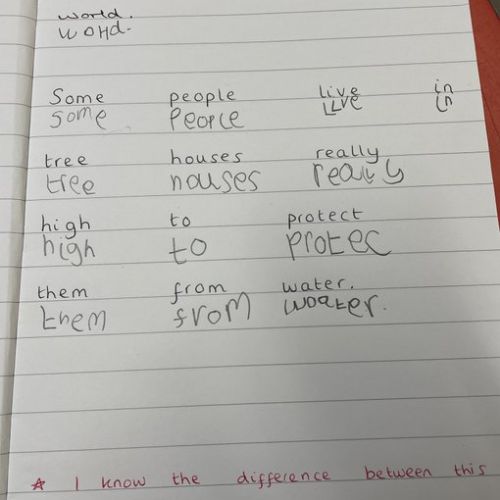 world.
WOHd.
Some people live in
some People Live in
tree houses really
tree houses really
high to protect
high to protec
them from water.
them from woater.
* I know the difference between this